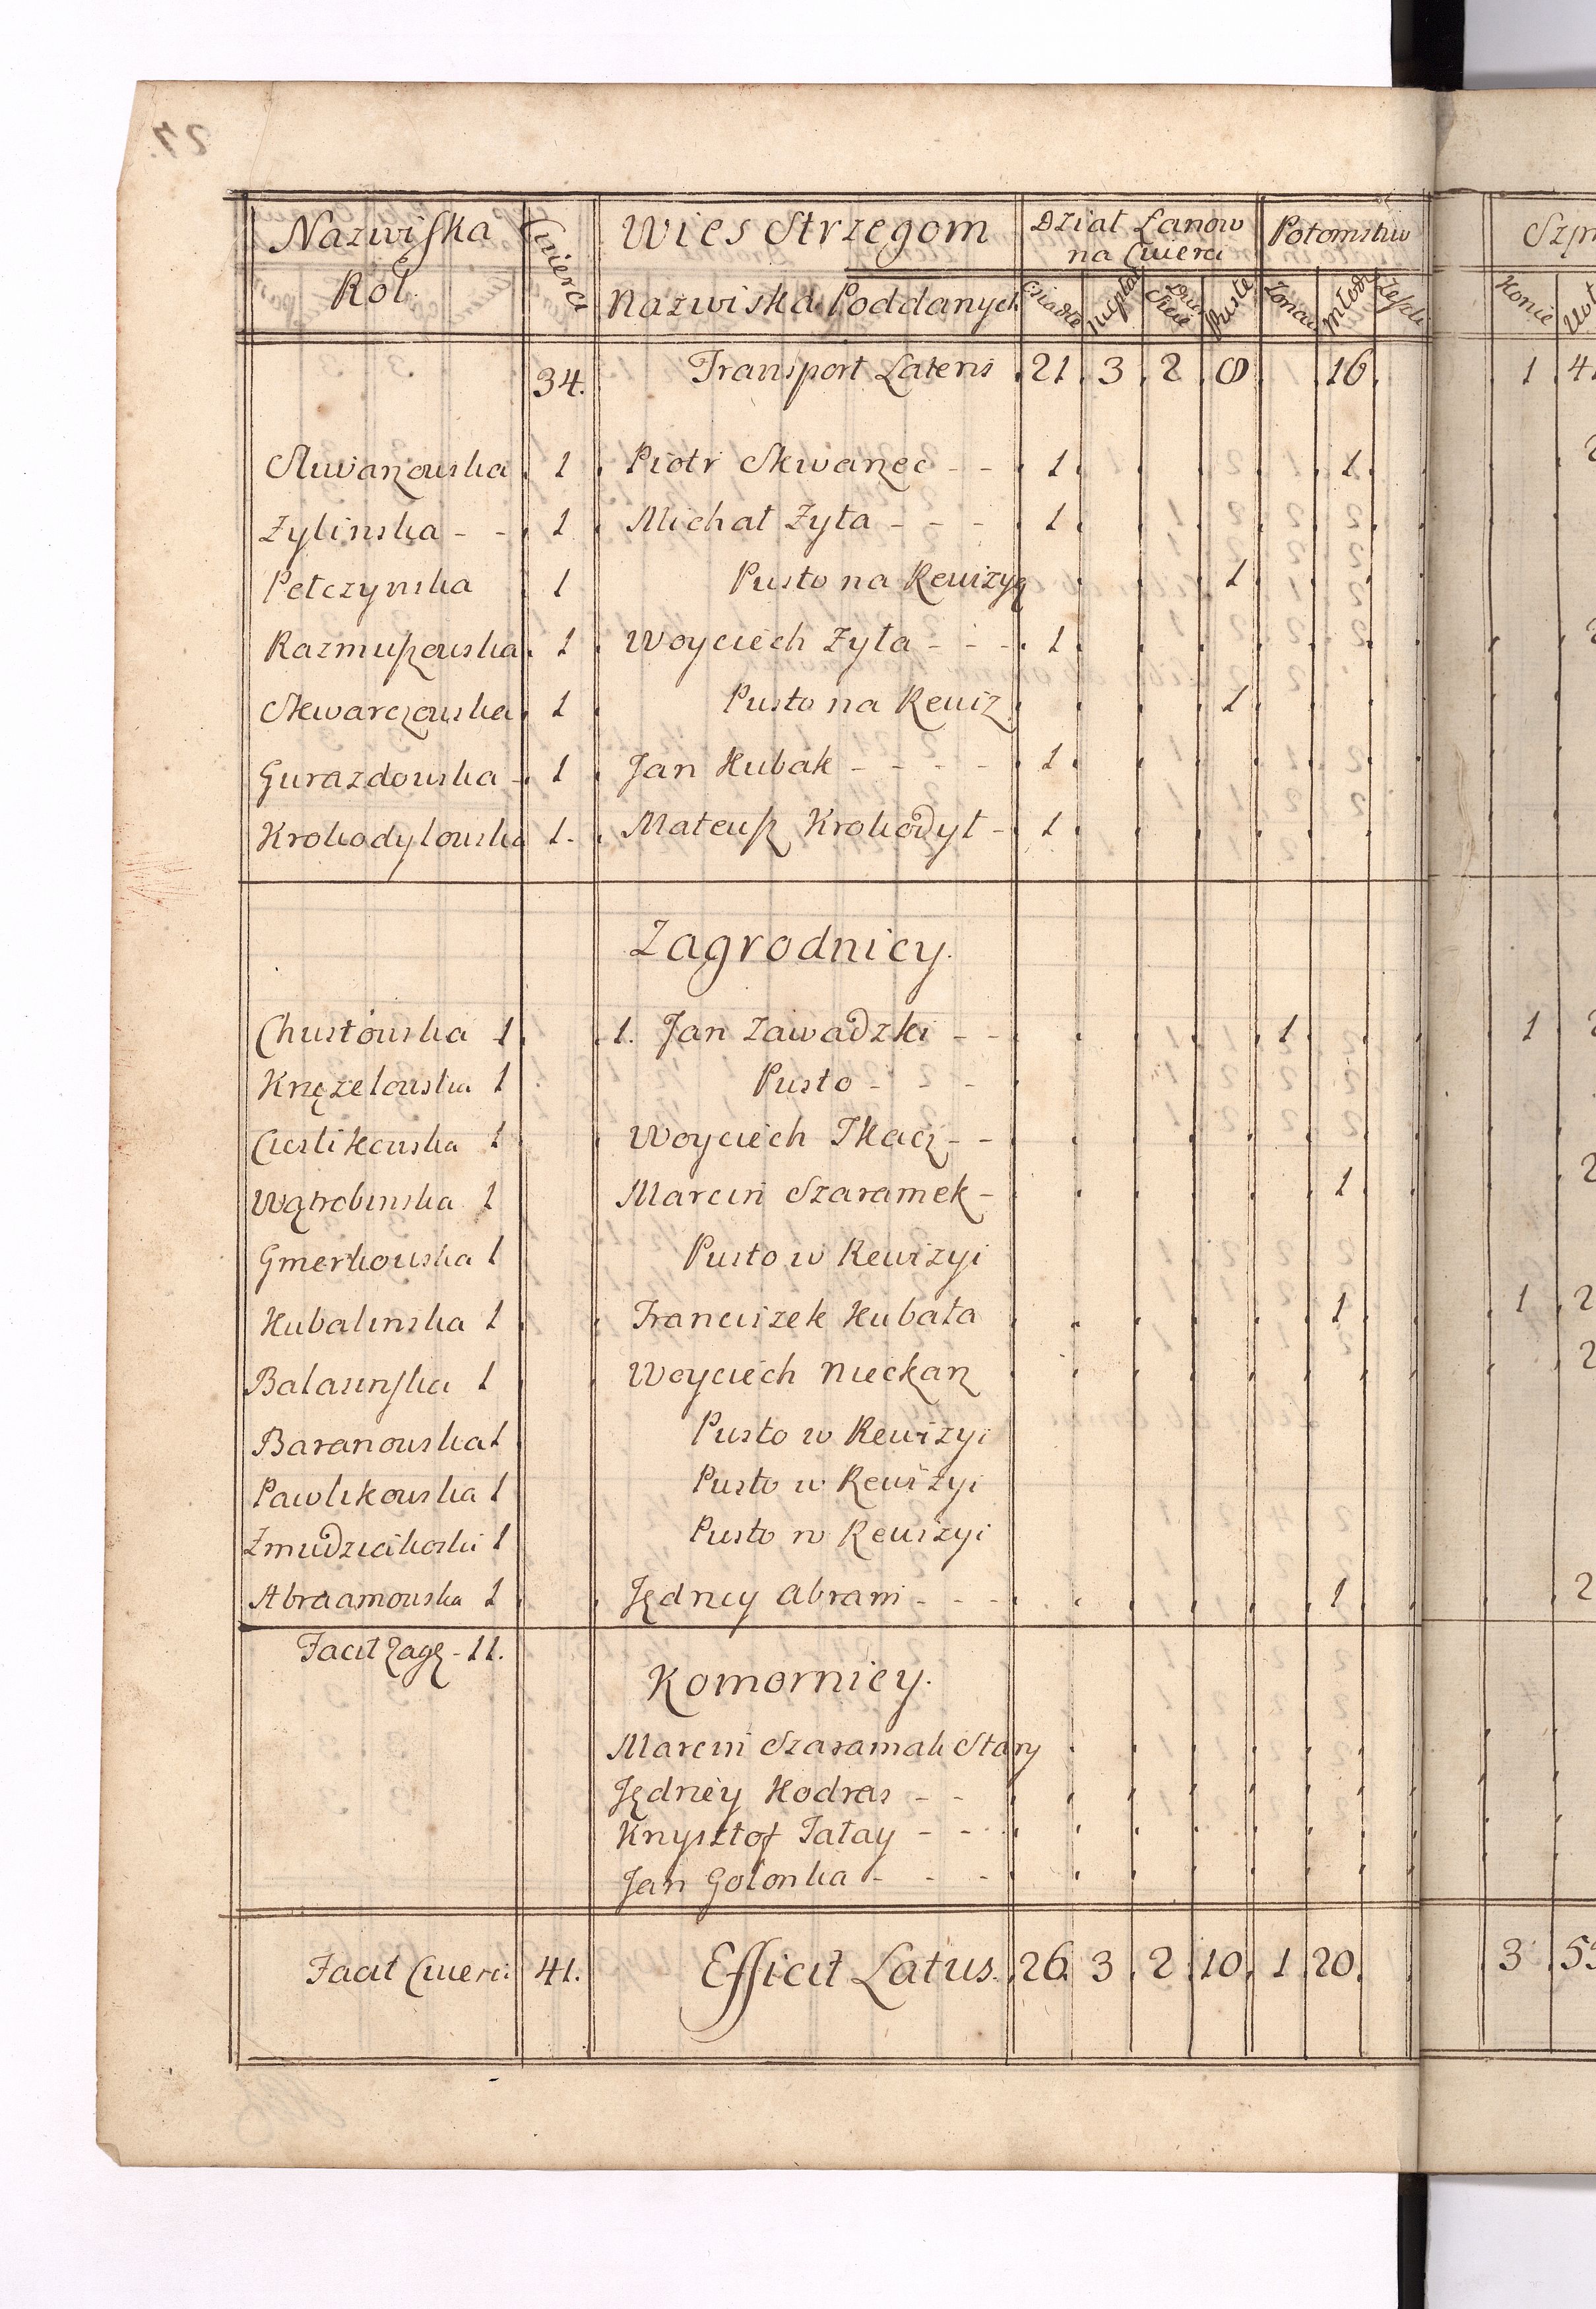 27.
Nazwiska Rol | Cwierci | Wies Strzegom | Dział Łanow na Cwierci | Potomstwo | Szp
Nazwiska Poddanych | Osiadłe | | | Puste | Żonaci | Młodzi | | Konie | Woł
34. Transport Lateris 21 3 2 8 16 1 4
Skwarzowska 1 Piotr Skwarzec - - 1 1 2
Żylinska - - 1 Michał Żyła - - - 1
Pełczynska 1 Pusto na Rewizyą 1
Razmuszowska 1 Woyciech Żyła - - - 1 2
Skwarczowska 1 Pusto na Rewiz. 1
Gurazdowska - 1 Jan Kubak - - - - 1
Krokodylowska 1. Mateusz Krokodył - 1
Zagrodnicy.
Chustowska 1 1. Jan Zawadzki - - 1 1 2
Knęzelowska 1 Pusto - - -
Cieslikowska 1 Woyciech Tkacz - -
Wątrobinska 1 Marcin Szaramek - 1 2
Gmerkowska 1 Pusto w Rewizyi
Kubalinska 1 Franciszek Kubała 1 1 2
Balasinska 1 Woyciech Nieckarz 2
Baranowska 1 Pusto w Rewizyi
Pawlikowska 1 Pusto w Rewizyi
1 Pusto w Rewizyi
Abraamowska 1 Jędrzey Abram - - - 1 2
Facit Zagr. - 11.
Komornicy.
Marcin Szaramak Stary
Jędrzey Kodras - -
Krzysztof Tatay - - -
Jan Golonka - - -
Facit Cwierci 41. Efficit Latus. 26 3 2 10 1 20 3 5